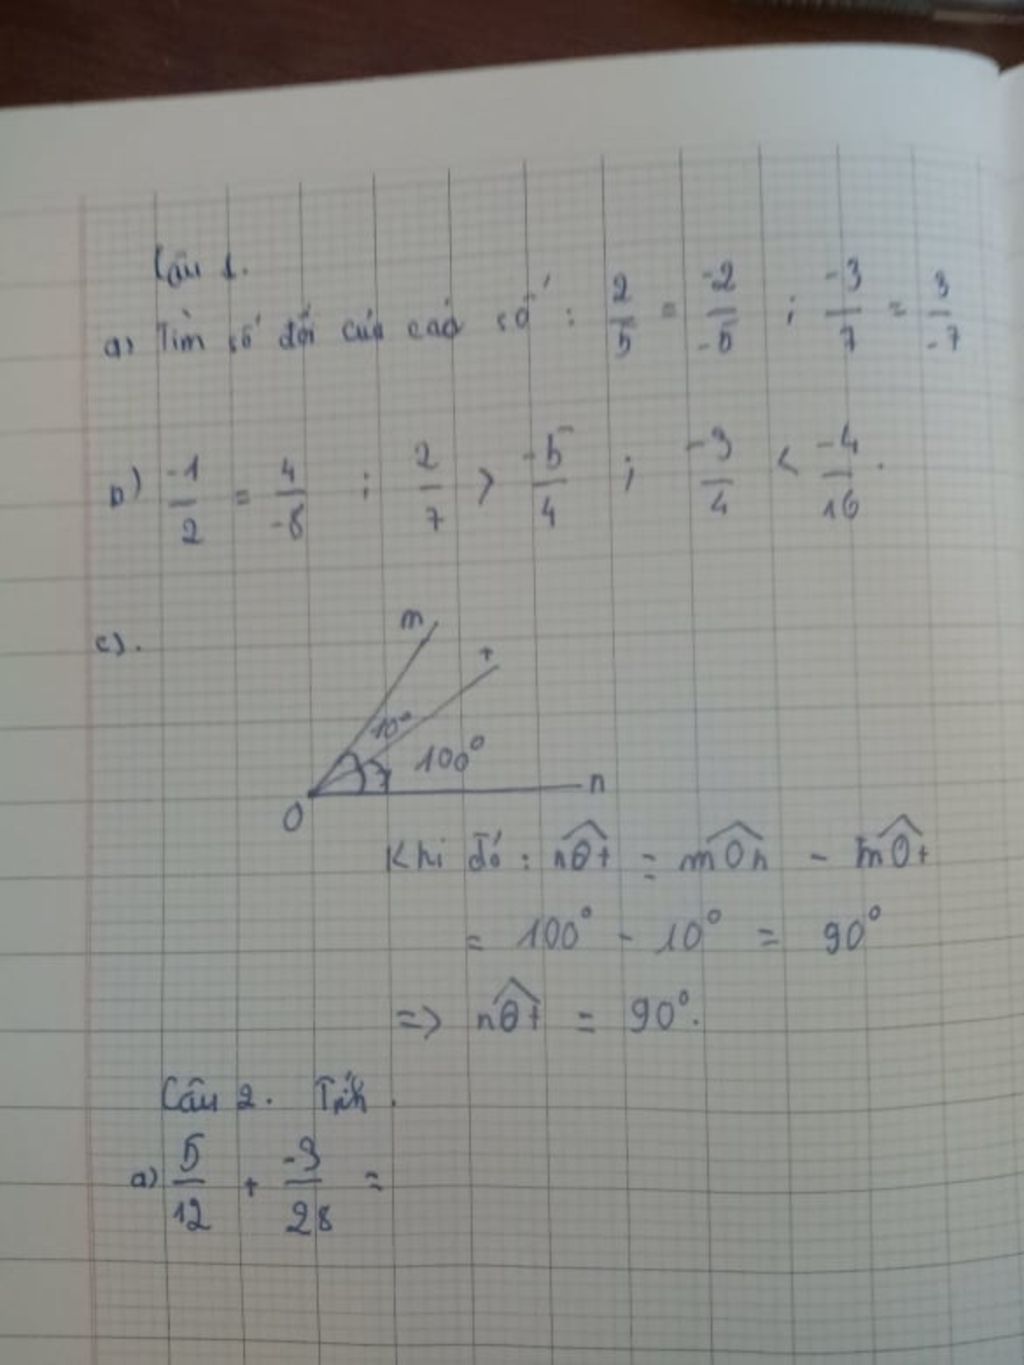 Câu 1.
a) Tìm số đối của các số : 2/5 = -2/-5 ; -3/7 = 3/-7
b) -1/2 = 4/-8 ; 2/7 > -5/4 ; -3/4 < -4/16 .
c).
m
t
10°
100°
n
O
Khi đó : nOt = mOn - mOt
= 100° - 10° = 90°
=> nOt = 90°.
Câu 2. Tính .
a) 5/12 + -3/28 =